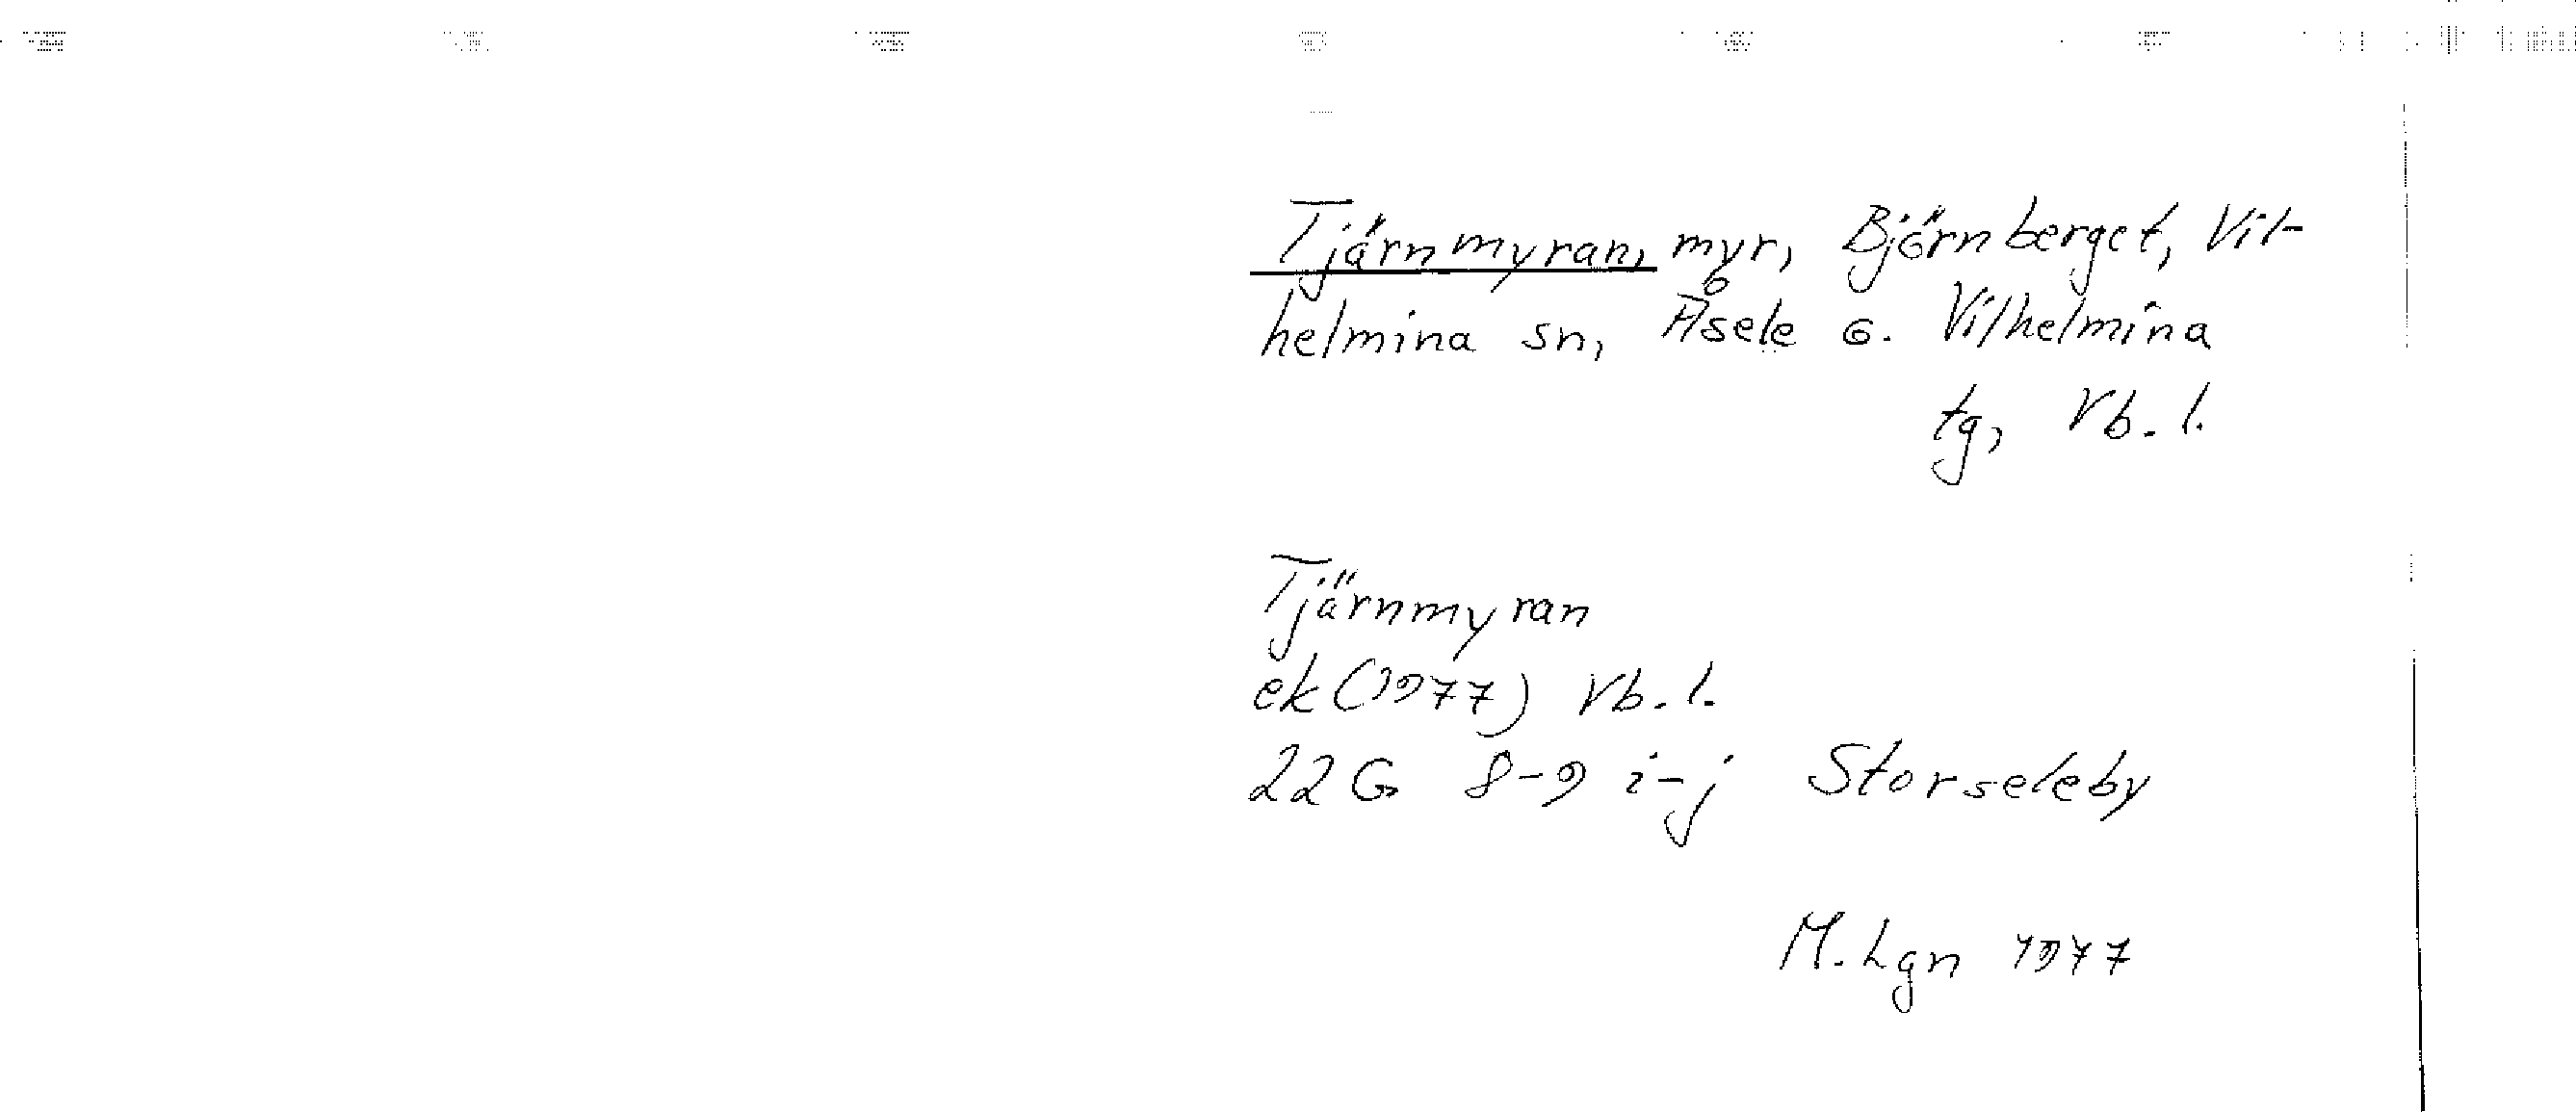 Tjärnmyran, myr, Björnberget, Vil-
helmina sn, Åsele o. Vilhelmina
tg, Vb. l.
Tjärnmyran
ek (1977) Vb. l.
22 G 8-9 i-j Storseleby
M. Lgn 1977